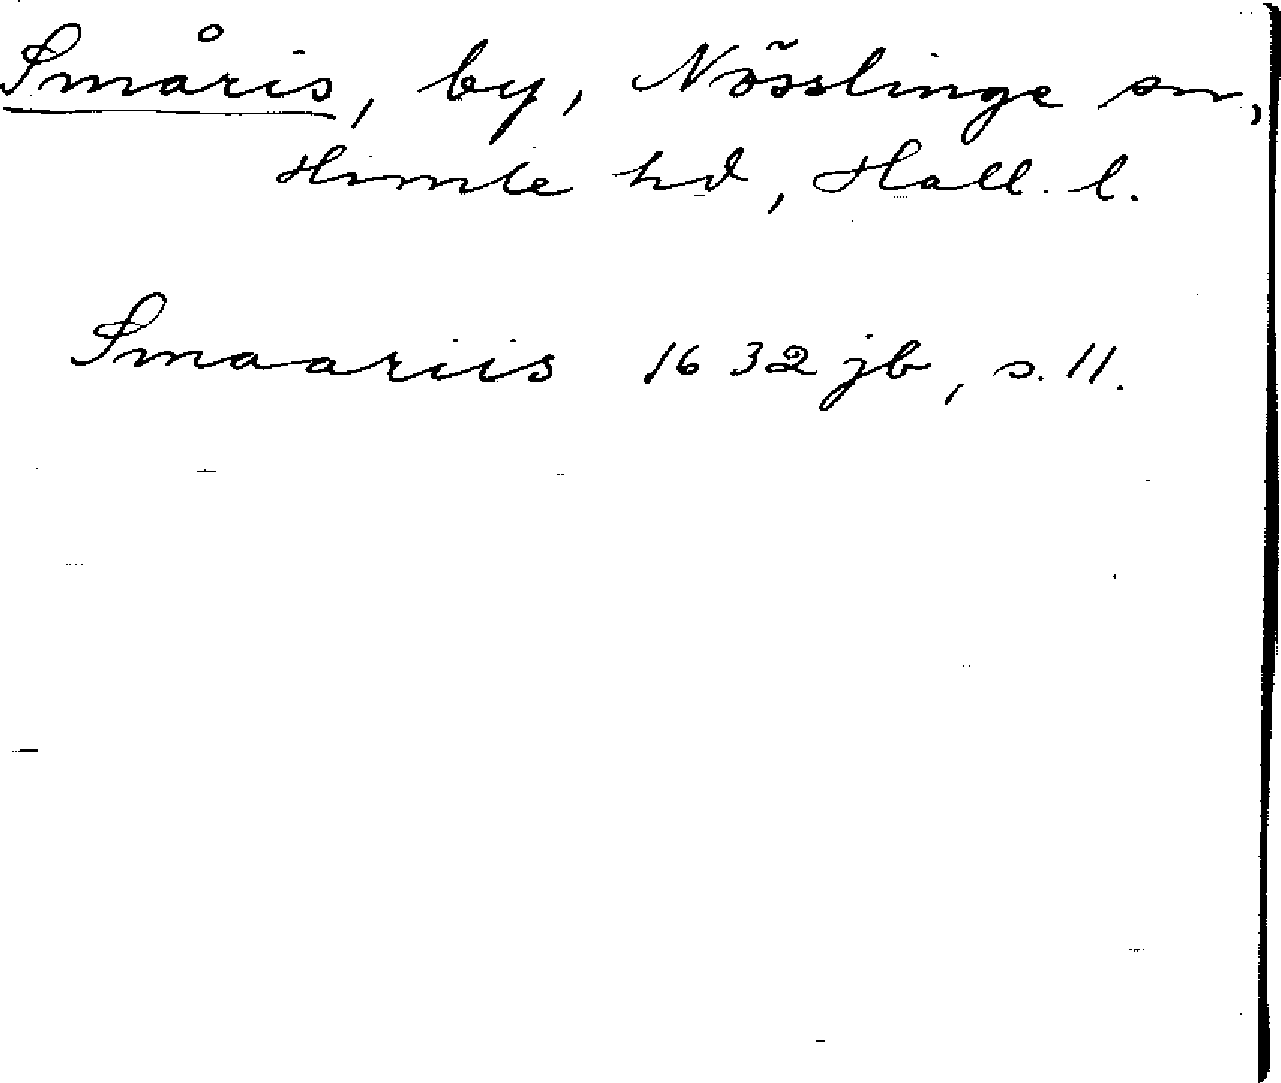 Småris, by, Nösslinge sn,
Himle hd, Hall. l.
Smaariis 1632 jb, s. 11.